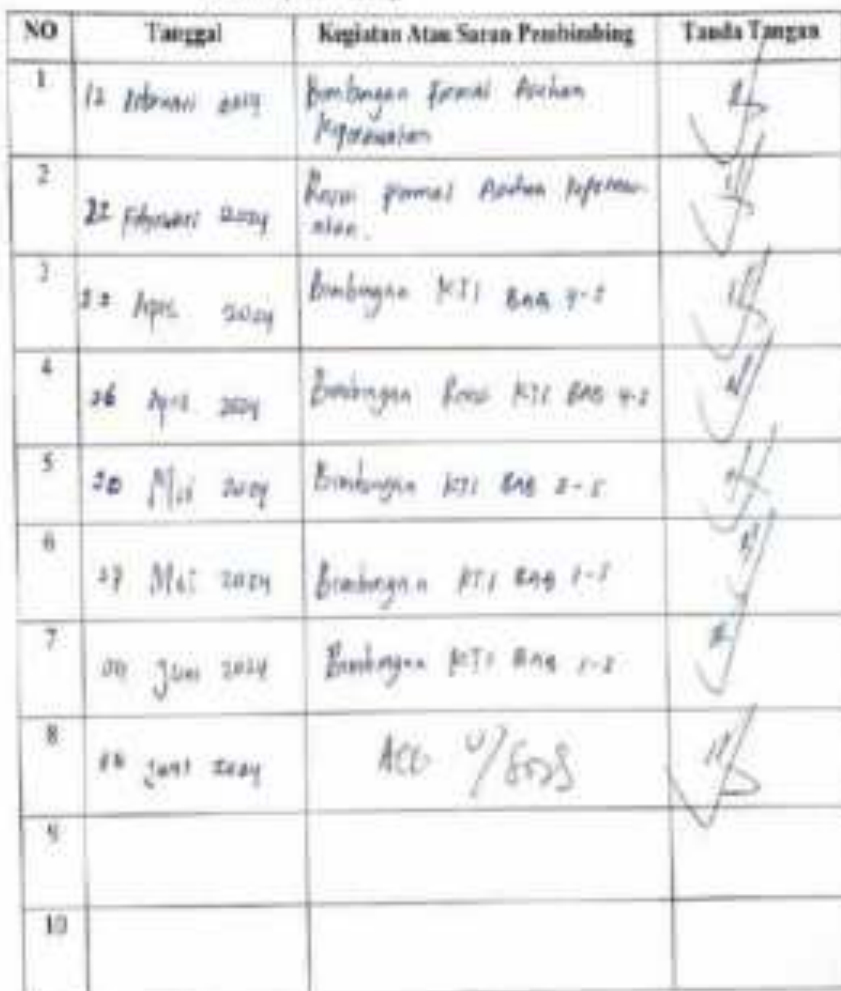 NO Tanggal Kegiatan Atau Saran Pembimbing Tanda Tangan
1 12 Februari 2024 Bimbingan Format Asuhan
Keperawatan
2 22 Februari 2024 Revisi Format Asuhan Keperaw-
atan.
3 April 2024 Bimbingan KTI BAB 4-5
4 26 April 2024 Bimbingan Revisi KTI BAB 4-5
5 20 Mei 2024 Bimbingan KTI BAB
6 27 Mei 2024 Bimbingan KTI BAB 1-5
7 Juni 2024 Bimbingan KTI BAB 1-5
8 Juni 2024 ACC U/
9
10